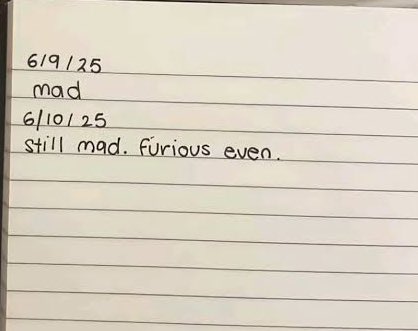 6/9/25
mad
6/10/25
still mad. furious even.